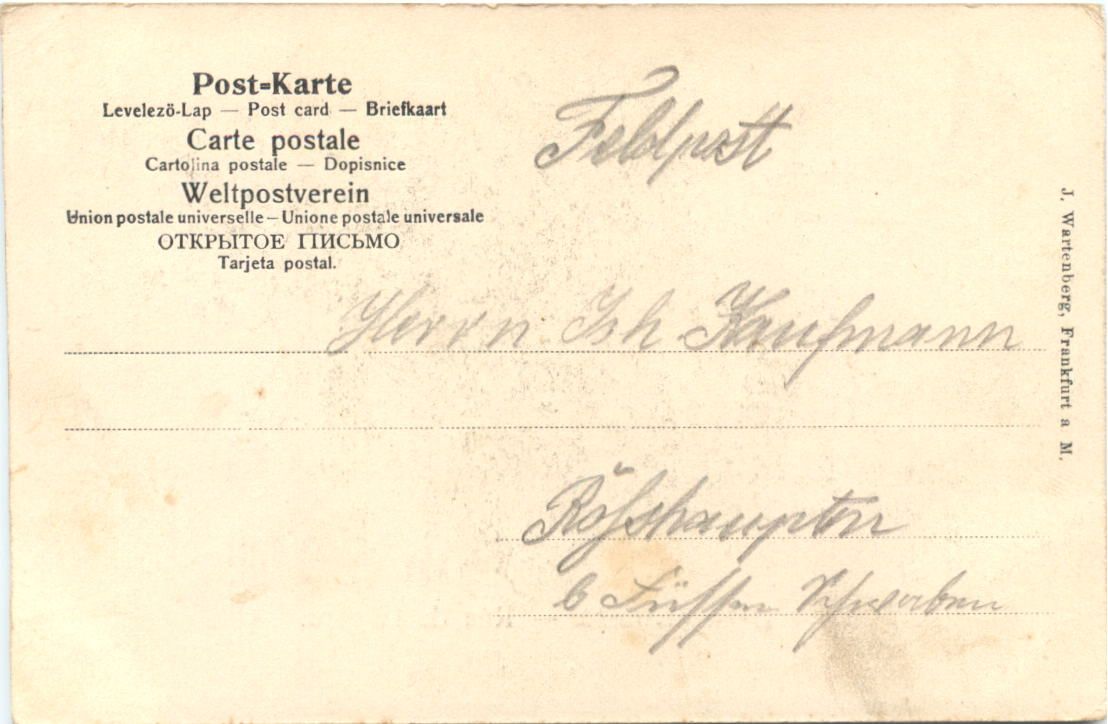 Post-Karte
Levelező-Lap — Post card — Briefkaart
Carte postale
Cartolina postale — Dopisnice
Weltpostverein
Union postale universelle – Unione postale universale
ОТКРЫТОЕ ПИСЬМО
Tarjeta postal.
Feldpost
Herrn Joh Kaufmann
Roßshaupten
b Füssen Schwaben
J. Wartenberg, Frankfurt a M.